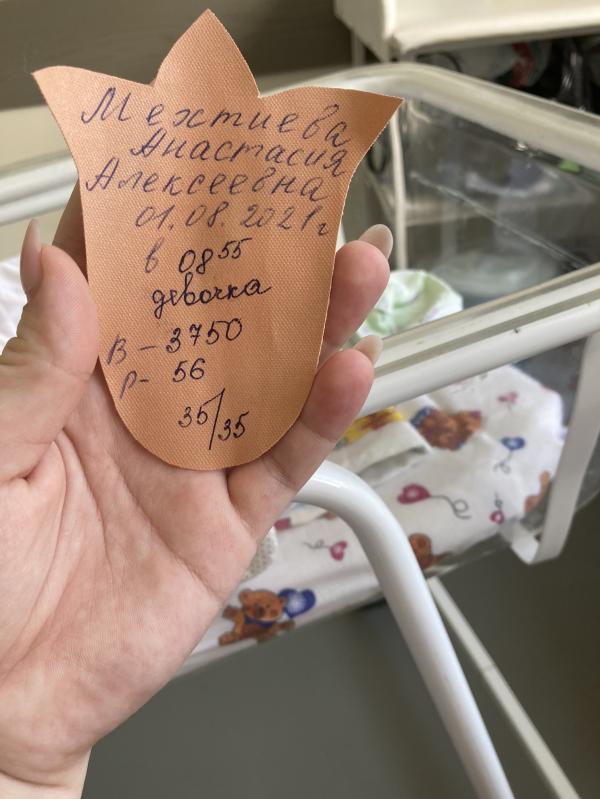 Мехтиева
Анастасия
Алексеевна
01.08.2021г
в 08⁵⁵
девочка
В - 3750
Р - 56
35/35